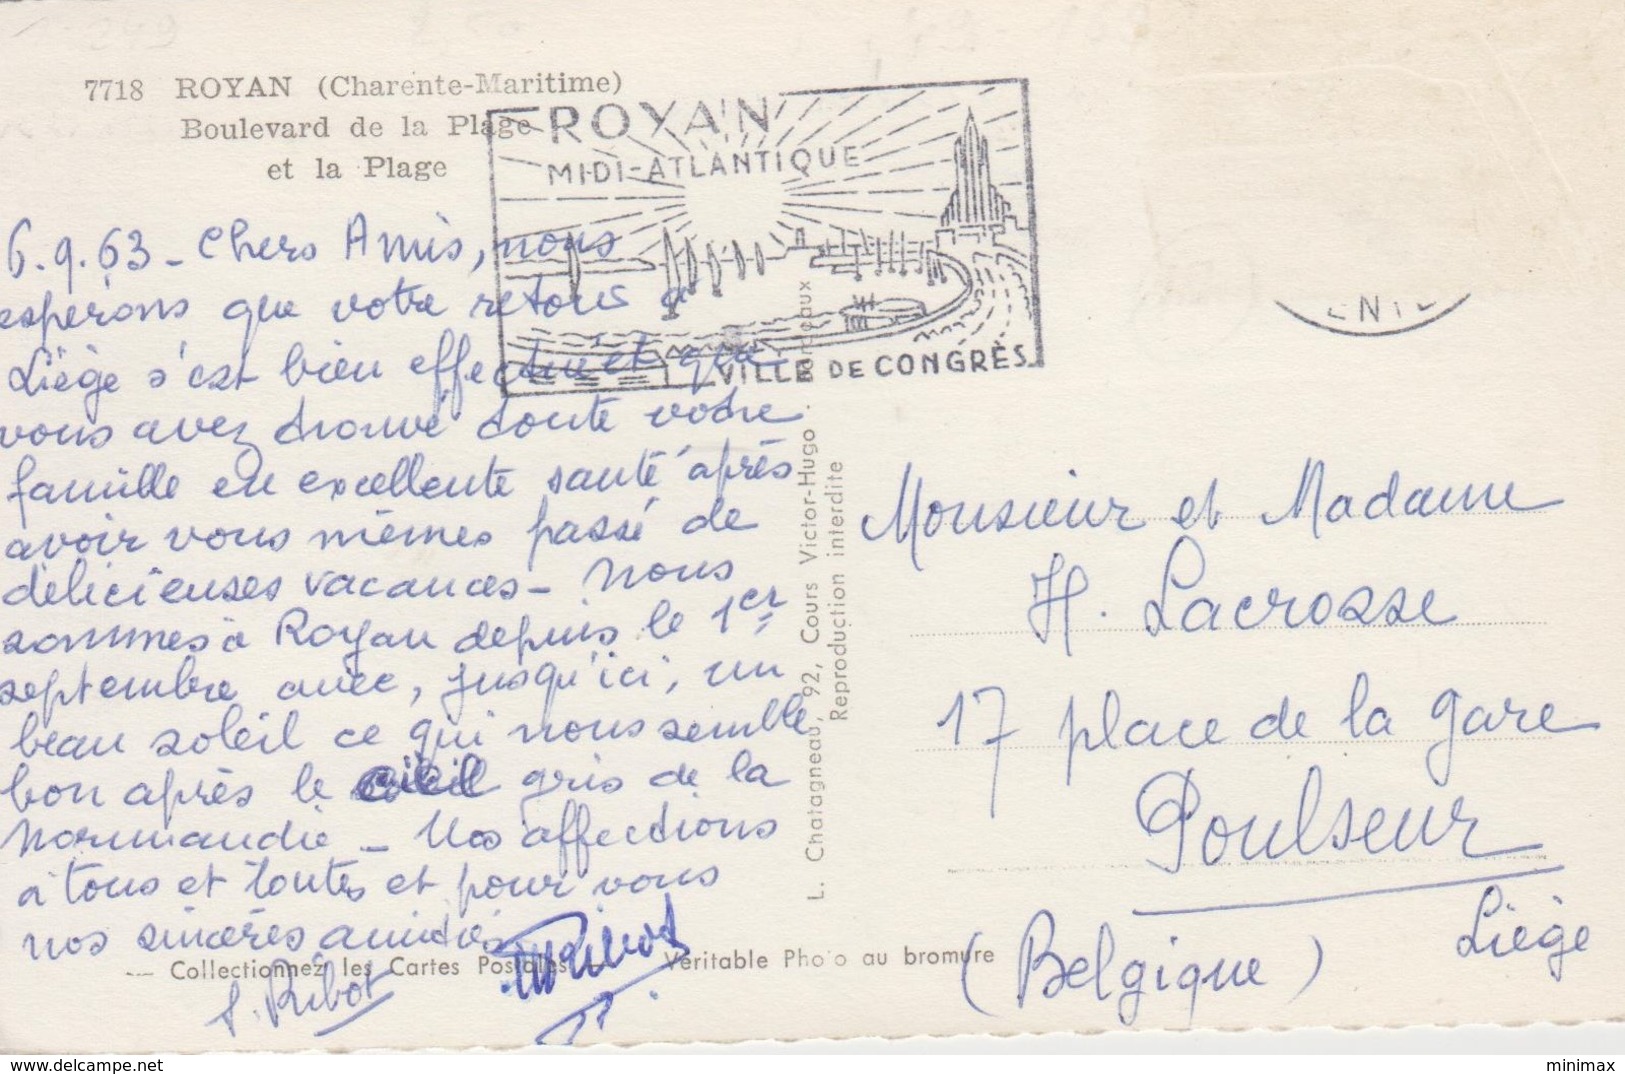 7718 ROYAN (Charente-Maritime)
Boulevard de la Plage
et la Plage
ROYAN
MIDI-ATLANTIQUE
VILLE DE CONGRÈS
6.9.63 - Chers Amis, nous
espérons que votre retour à
Liège s'est bien effectué et que
vous avez trouvé toute votre
famille en excellente santé après
avoir vous mêmes passé de
délicieuses vacances - Nous
sommes à Royan depuis le 1er
septembre avec, jusqu'ici, un
beau soleil ce qui nous semble
bon après le ciel gris de la
Normandie - Nos affections
à tous et toutes et pour vous
nos sincères amitiés
J. Ribot
L. Chatagneau, 92, Cours Victor-Hugo - Bordeaux
Reproduction interdite
Monsieur et Madame
H. Lacrosse
17 place de la gare
Poulseur
Liège
(Belgique)
Collectionnez les Cartes Postales Véritable Photo au bromure
www.delcampe.net
minimax